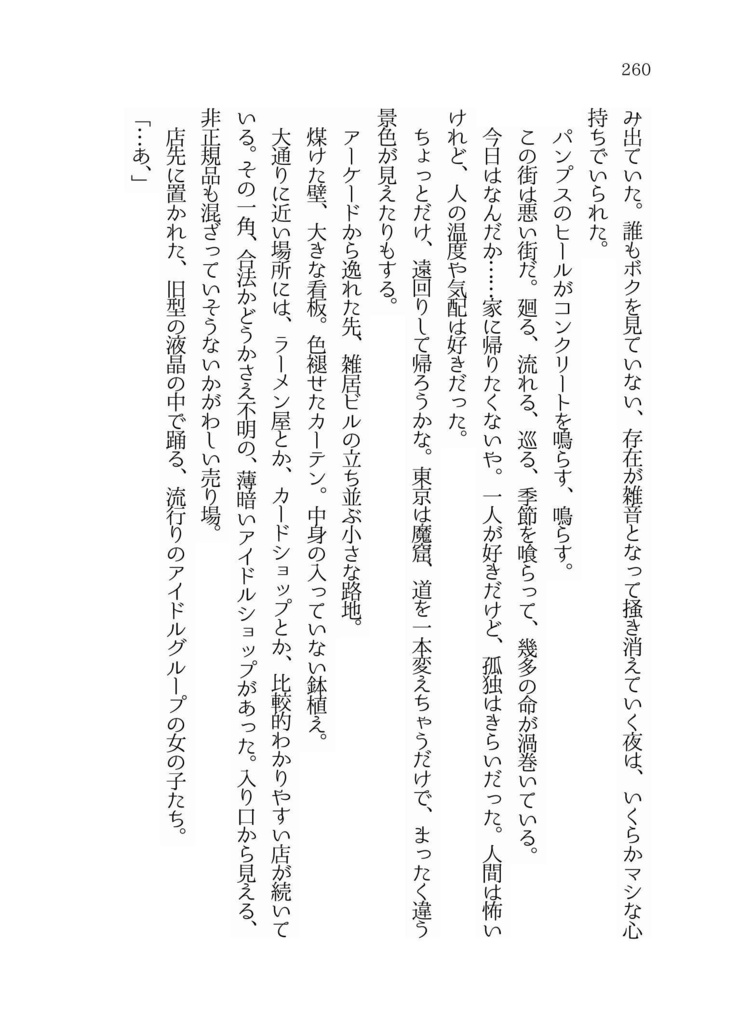 260
み出ていた。誰もボクを見ていない、存在が雑音となって掻き消えていく夜は、いくらかマシな心
持ちでいられた。
パンプスのヒールがコンクリートを鳴らす、鳴らす。
この街は悪い街だ。廻る、流れる、巡る、季節を喰らって、幾多の命が渦巻いている。
今日はなんだか……家に帰りたくないや。一人が好きだけど、孤独はきらいだった。人間は怖い
けれど、人の温度や気配は好きだった。
ちょっとだけ、遠回りして帰ろうかな。東京は魔窟、道を一本変えちゃうだけで、まったく違う
景色が見えたりもする。
アーケードから逸れた先、雑居ビルの立ち並ぶ小さな路地。
煤けた壁、大きな看板。色褪せたカーテン。中身の入っていない鉢植え。
大通りに近い場所には、ラーメン屋とか、カードショップとか、比較的わかりやすい店が続いて
いる。その一角、合法かどうかさえ不明の、薄暗いアイドルショップがあった。入り口から見える、
非正規品も混ざっていそうないかがわしい売り場。
店先に置かれた、旧型の液晶の中で踊る、流行りのアイドルグループの女の子たち。
「…あ、」